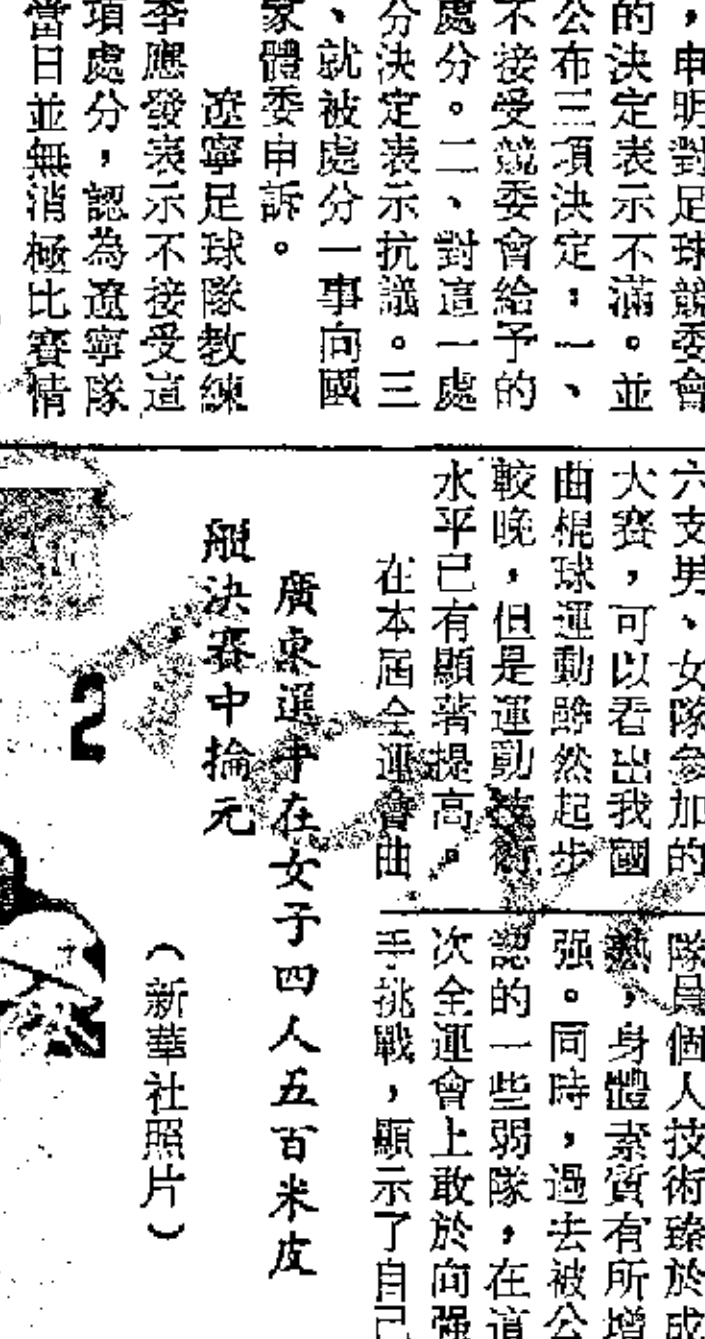 ，申明對足球競委會
的決定表示不滿。並
公布三項決定：一、
不接受競委會給予的
處分。二、對這一處
分決定表示抗議。三
、就被處分一事向國
家體委申訴。
遼寧足球隊教練
李應發表示不接受這
項處分，認為遼寧隊
當日並無消極比賽情
六支男、女隊參加的
大賽，可以看出我國
曲棍球運動雖然起步
較晚，但是運動技術
水平已有顯著提高。
在本屆全運會曲
隊員個人技術臻於成
熟，身體素質有所增
强。同時，過去被公
認的一些弱隊，在這
次全運會上敢於向强
手挑戰，顯示了自己
廣東選手在女子四人五百米皮
艇決賽中掄元
（新華社照片）
2